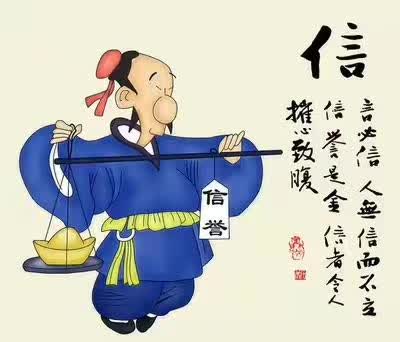 信
言必信 人無信而不立
信誉是金 信者令人
推心致腹
信誉